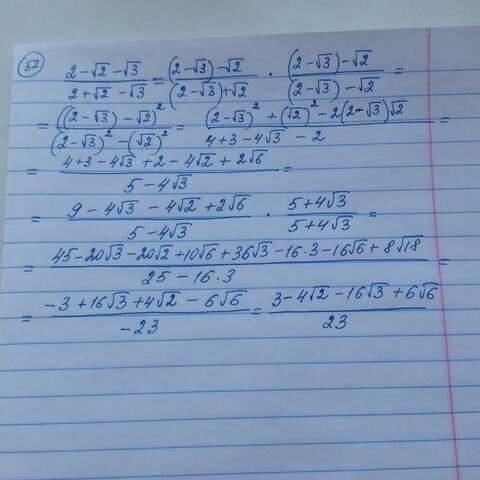 52
(2 - √2 - √3)/(2 + √2 - √3) = ((2 - √3) - √2)/((2 - √3) + √2) · ((2 - √3) - √2)/((2 - √3) - √2) =
= ((2 - √3) - √2)²/((2 - √3)² - (√2)²) = ((2 - √3)² + (√2)² - 2(2 - √3)√2)/(4 + 3 - 4√3 - 2) =
= (4 + 3 - 4√3 + 2 - 4√2 + 2√6)/(5 - 4√3) =
= (9 - 4√3 - 4√2 + 2√6)/(5 - 4√3) · (5 + 4√3)/(5 + 4√3) =
= (45 - 20√3 - 20√2 + 10√6 + 36√3 - 16·3 - 16√6 + 8√18)/(25 - 16·3) =
= (-3 + 16√3 + 4√2 - 6√6)/(-23) = (3 - 4√2 - 16√3 + 6√6)/23